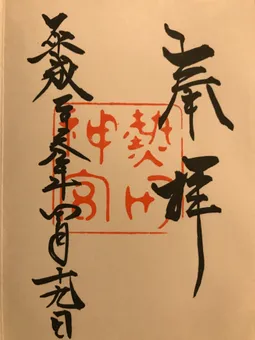 奉拝
熱田
神宮
平成二十参年四月十九日